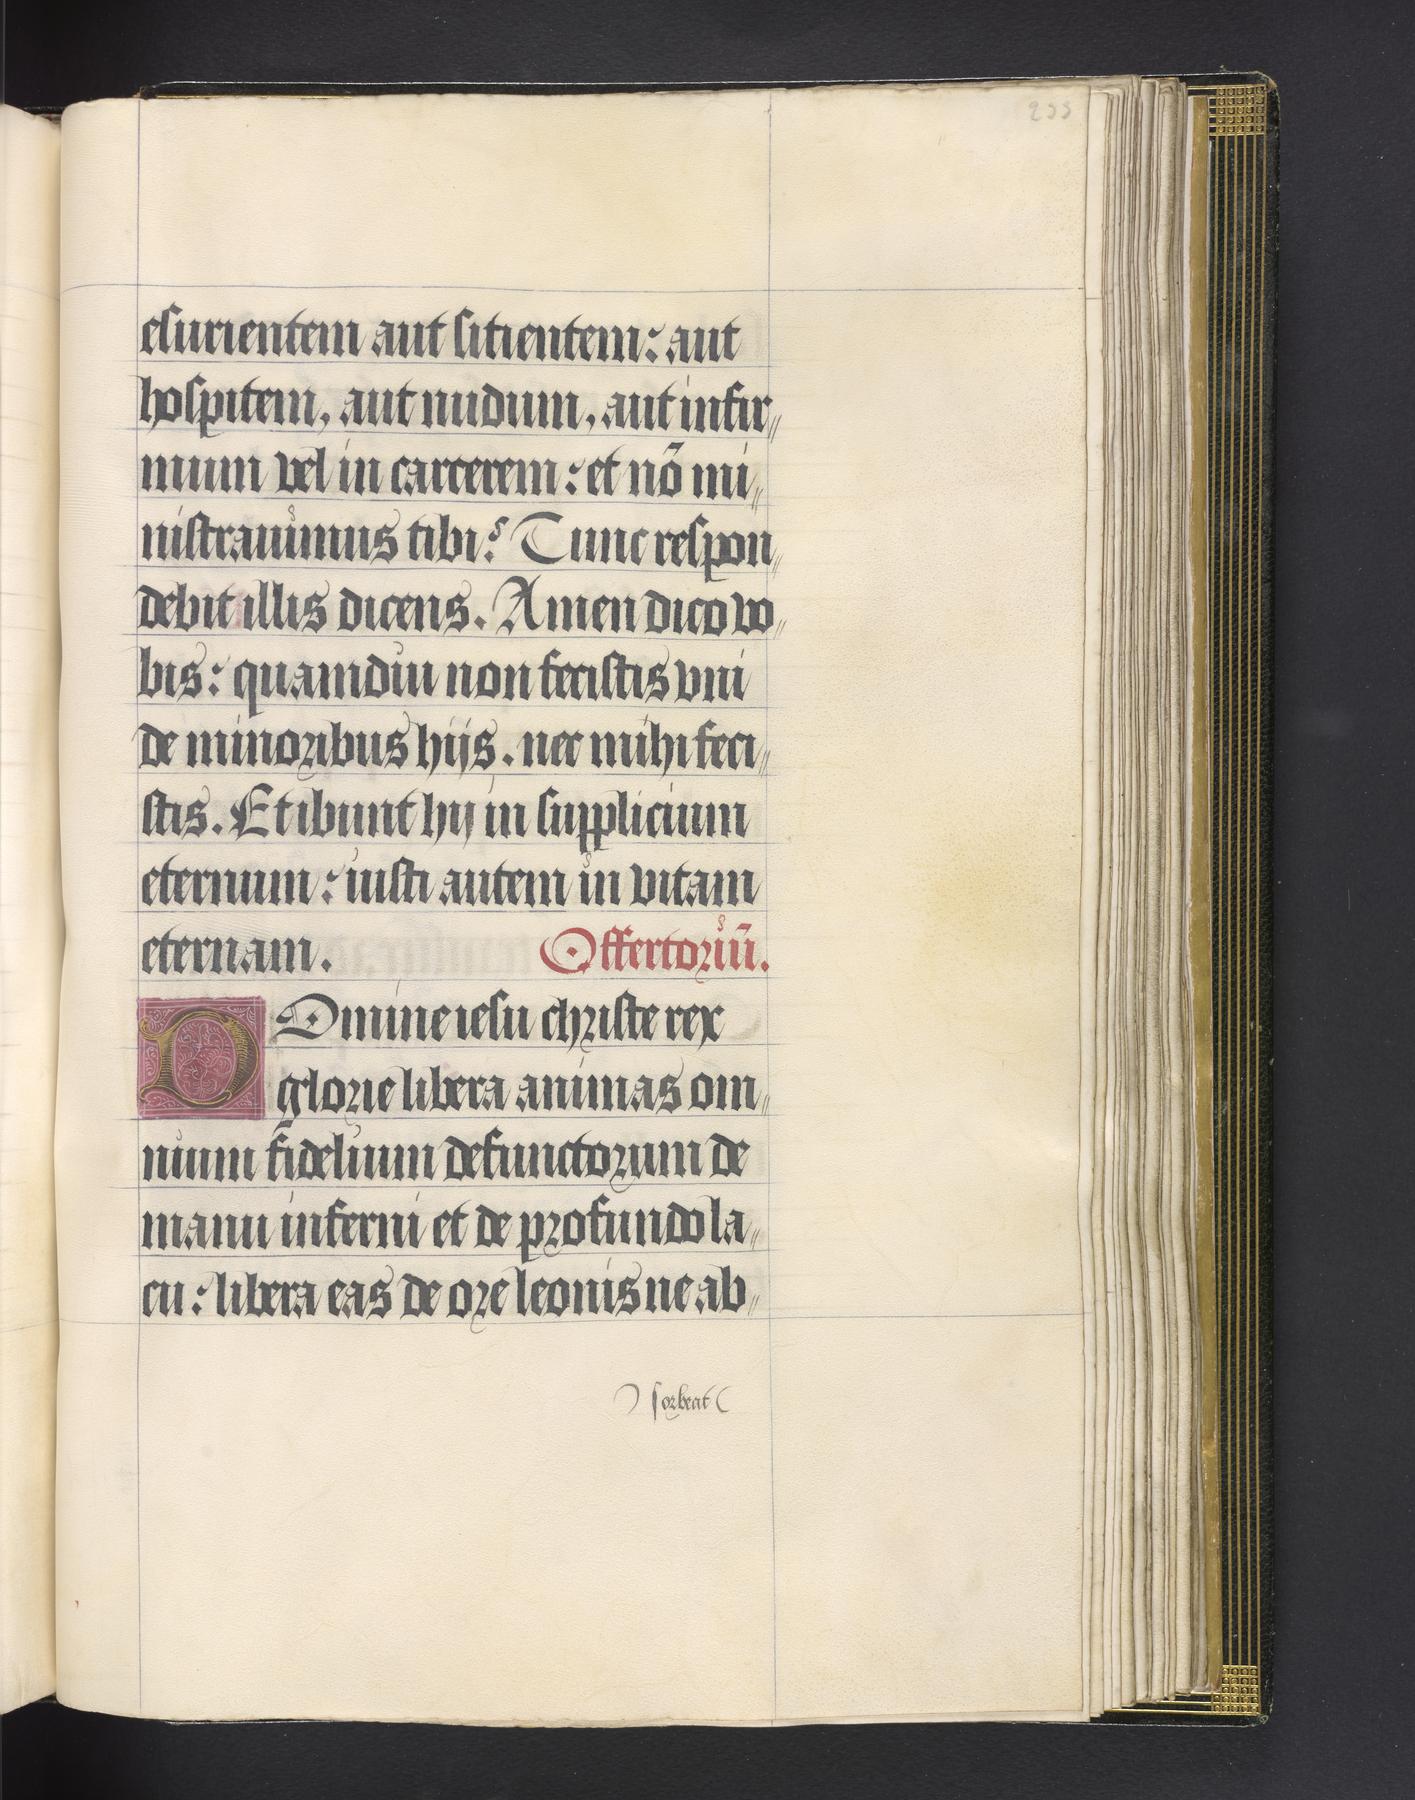 233
esurientem aut sitientem: aut
hospitem, aut nudum, aut infir〃
mum vel in carcerem: et nō mi〃
nistrauimus tibi? Tunc respon〃
debit illis dicens. Amen dico vo〃
bis: quamdiu non fecistis vni
de minoribus hijs. nec mihi feci〃
stis. Et ibunt hij in supplicium
eternum: iusti autem in vitam
eternam. Offertoriū.
Domine iesu christe rex
glorie libera animas om〃
nium fidelium defunctorum de
manu inferni et de profundo la〃
cu: libera eas de ore leonis ne ab〃
sorbeat